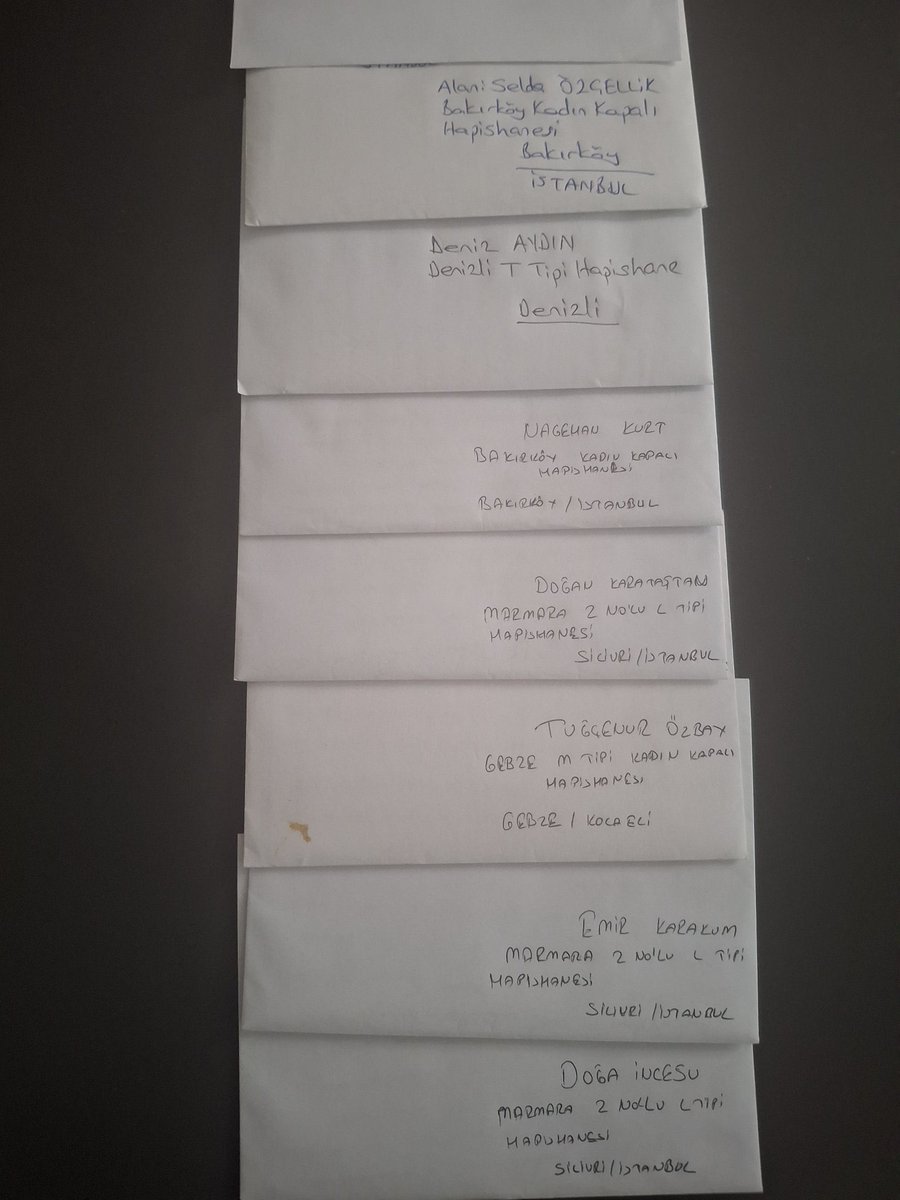 Alani Selda ÖZÇELLİK
Bakırköy Kadın Kapalı
Hapishanesi
Bakırköy
İSTANBUL
Deniz AYDIN
Denizli T Tipi Hapishane
Denizli
NAGEHAN KURT
BAKIRKÖY KADIN KAPALI
HAPİSHANESİ
BAKIRKÖY / İSTANBUL
DOĞAN KARATAŞTAN
MARMARA 2 NO'LU L TİPİ
HAPİSHANESİ
SİLİVRİ / İSTANBUL
TUĞÇENUR ÖZBAY
GEBZE M TİPİ KADIN KAPALI
HAPİSHANESİ
GEBZE / KOCAELİ
EMİR KARAKUM
MARMARA 2 NO'LU L TİPİ
HAPİSHANESİ
SİLİVRİ / İSTANBUL
DOĞA İNCESU
MARMARA 2 NO'LU L TİPİ
HAPİSHANESİ
SİLİVRİ / İSTANBUL